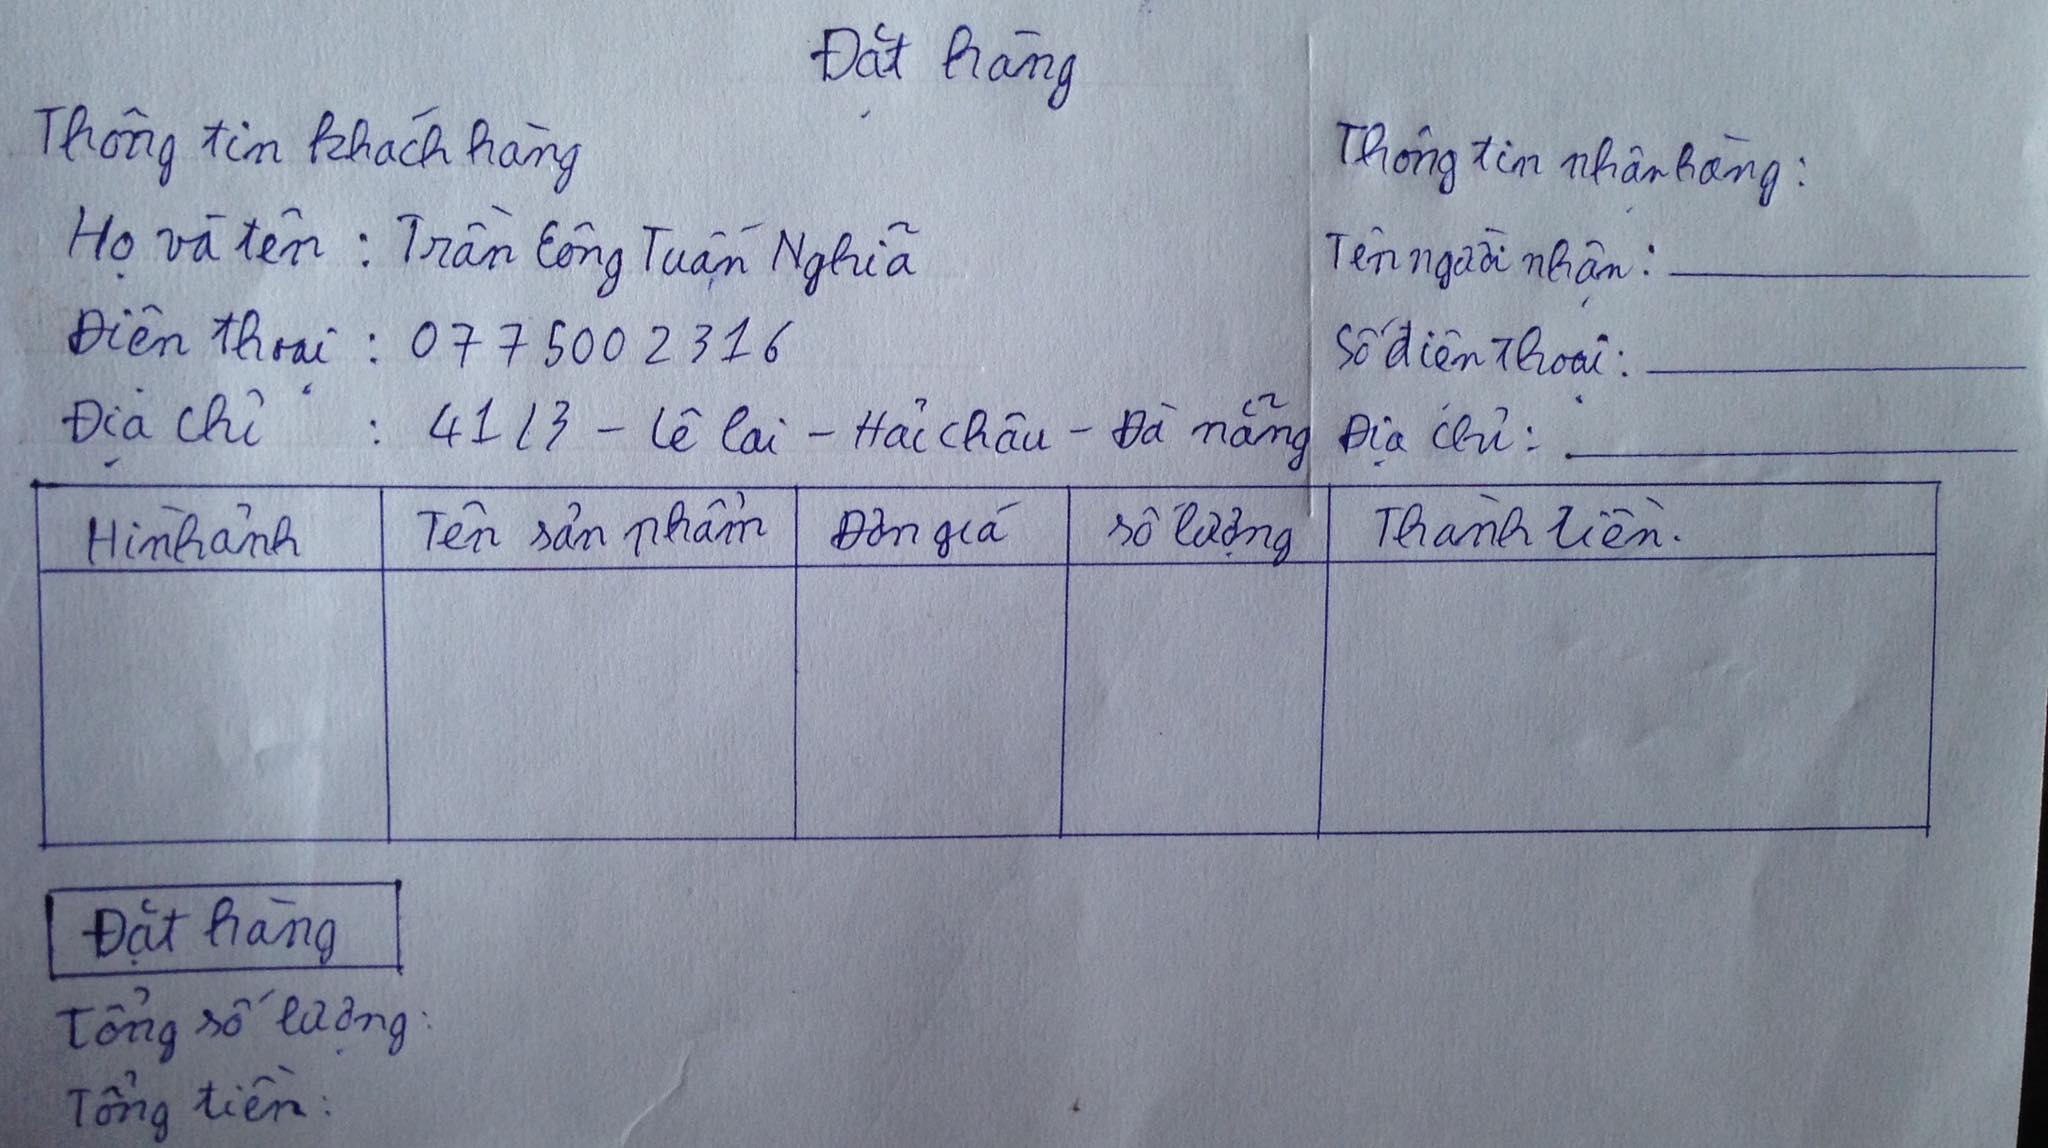 Đặt hàng
Thông tin khách hàng
Họ và tên : Trần Công Tuấn Nghĩa
Điện thoại : 0775002316
Địa chỉ : 41/3 - Lê Lai - Hải Châu - Đà Nẵng
Thông tin nhận hàng:
Tên người nhận:
Số điện thoại:
Địa chỉ:
Hình ảnh Tên sản phẩm Đơn giá Số lượng Thành tiền.
Đặt hàng
Tổng số lượng:
Tổng tiền: